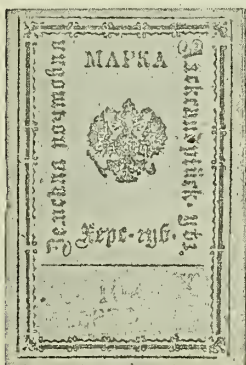 Земская почтовая
МАРКА
Александрійск. уѣз.
Херс. губ.